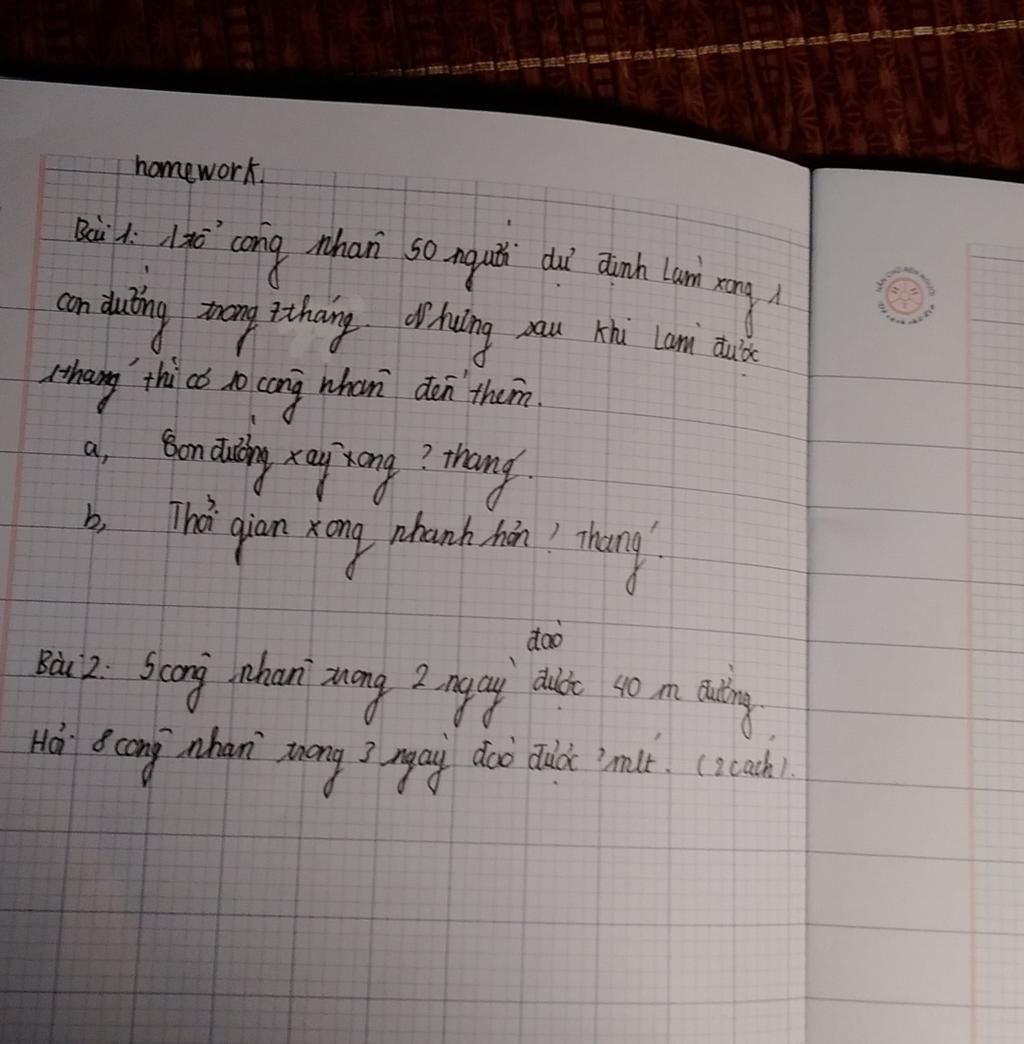 homework.
Bài 1: 1 tổ công nhân 50 người dự định làm xong 1
con đường trong 7 tháng. Nhưng sau khi làm được
1 tháng thì có 10 công nhân đến thêm.
a, Con đường xây xong ? tháng.
b, Thời gian xong nhanh hơn ? tháng.
đào
Bài 2: 5 công nhân trong 2 ngày được 40 m đường.
Hỏi 8 công nhân trong 3 ngày đào được ? mét. (2 cách).